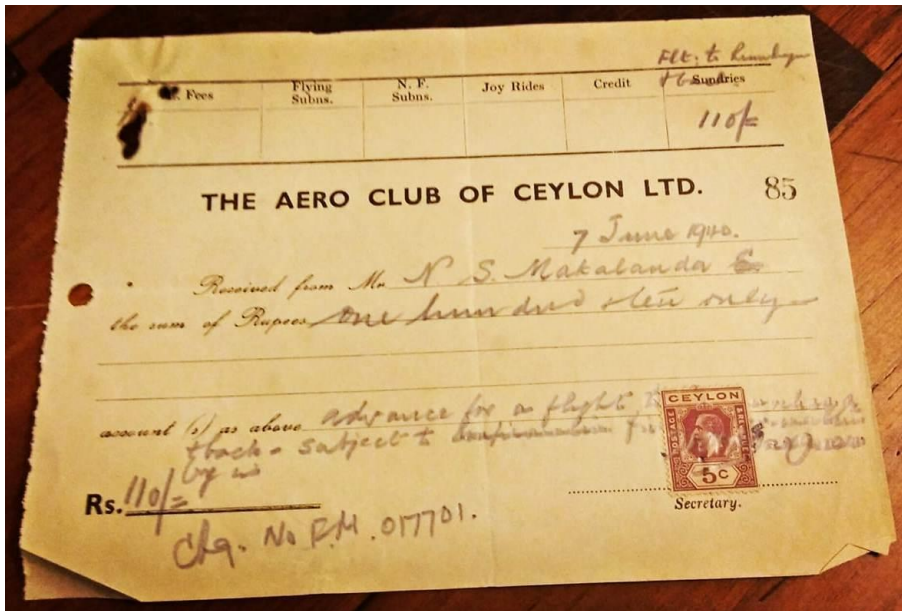 Flt: to
Fees Flying Subns. N. F. Subns. Joy Rides Credit Sundries
110/=
THE AERO CLUB OF CEYLON LTD. 85
7 June 1940.
Received from Mr N. S. Makalanda
the sum of Rupees One hundred & ten only
account (s) as above advance for a flight
& back - subject to
by us
CEYLON
POSTAGE
5c
Rs. 110/=
Secretary.
Chq. No F.M. 017701.